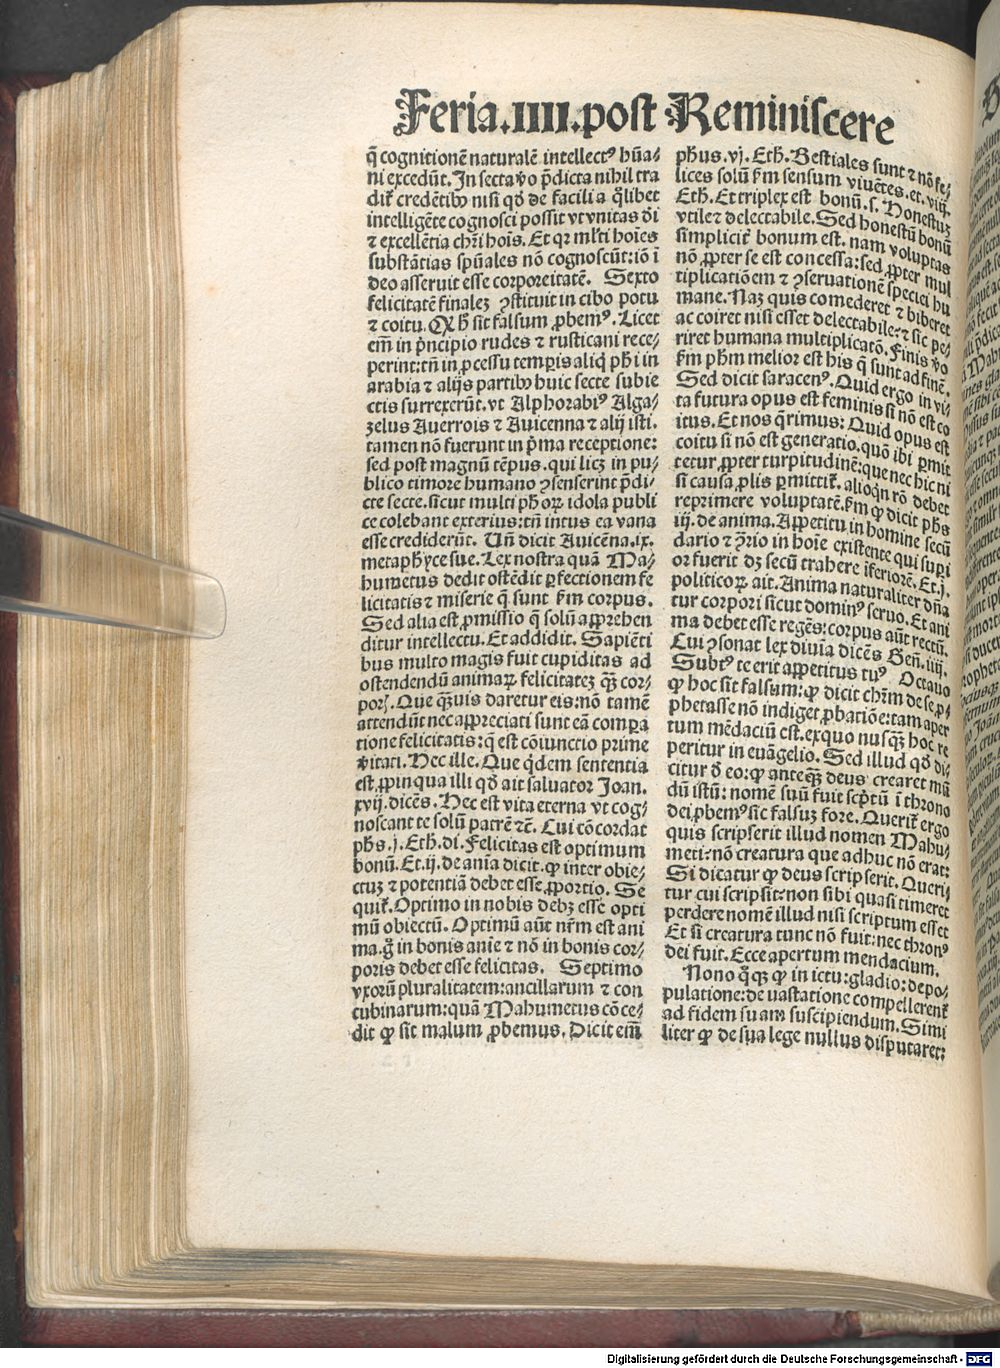 Feria.IIII.post Reminiscere
q̄ cognitionē naturalē intellectꝰ hūa-
ni excedūt. In secta v̓o p̄dicta nihil tra
dit̄ credētibꝰ nisi qd̓ de facili a q̄libet
intelligēte cognosci possit vt vnitas d̓i
⁊ excellētia chr̄i hoīs. Et qꝛ ml̓ti hoīes
substātias spūales nō cognoscūt: iō ī
deo asseruit esse corporeitatē. Sexto
felicitatē finaleʒ ꝯstituit in cibo potu
⁊ coitu. Qd̓ sit falsum ꝓbemꝰ. Licet
em̄ in pͥncipio rudes ⁊ rusticani rece-
perint: tn̄ in ꝓcessu temꝑis aliq̄ ph̓i in
arabia ⁊ alijs partibꝰ huic secte subie
ctis surrexerūt. vt Alphorabiꝰ Alga-
zelus Auerrois ⁊ Auicenna ⁊ alij isti.
tamen nō fuerunt in pͥma receptione:
sed post magnū tēpus. qui licʒ in pu-
blico timore humano ꝯsenserint p̄di-
cte secte. sicut multi ph̓oꝝ idola publi
ce colebant exterius: tn̄ intus ea vana
esse crediderūt. Un̄ dicit Auicēna .ix.
metaphyce sue. Lex nostra quā Ma-
humetus dedit ostēdit ꝑfectionem fe
licitatis ⁊ miserie q̄ sunt ẜm corpus.
Sed alia est ꝓmissio q̄ solū apprehen
ditur intellectu. Et addidit. Sapiēti
bus multo magis fuit cupiditas ad
ostendendū animaꝝ felicitateʒ qꝫ̄ cor-
poꝝ. Que qꝫ̄uis daretur eis: nō tamē
attendūt nec appreciati sunt eā compa
tione felicitatis: q̄ est cōiunctio prime
v̓itati. Hec ille. Que qͥdem sententia
est ꝓpinqua illi qd̓ ait saluator Joan.
xvij. dicēs. Hec est vita eterna vt cog-
noscant te solū patrē ⁊c̄. Cui cōcordat
ph̓s .j. Eth. di. Felicitas est optimum
bonū. Et .ij. de anīa dicit. ꝙ inter obie-
ctuʒ ⁊ potentiā debet esse ꝓportio. Se
quit̄. Optimo in nobis debʒ esse opti
mū obiectū. Optimū aūt nr̄m est ani
ma. g̊ in bonis anīe ⁊ nō in bonis cor-
poris debet esse felicitas. Septimo
vxorū pluralitatem: ancillarum ⁊ con
cubinarum: quā Mahumetus cōce-
dit ꝙ sit malum ꝓbemus. Dicit em̄
ph̓us .vj. Eth. Bestiales sunt ⁊ nō fe-
lices solū ẜm sensum viuētes. et .viij.
Eth. Et triplex est bonū .s. Honestuʒ
vtile ⁊ delectabile. Sed honestū bonū
simplicit̓ bonum est. nam voluptas
nō ꝓpter se est concessa: sed ꝓpter mul
tiplicatiōem ⁊ ꝯseruationē speciei hu
mane. Naʒ quis comederet ⁊ biberet
ac coiret nisi esset delectabile: ⁊ sic pe-
riret humana multiplicatō. Finis v̓o
ẜm ph̓m melior est his q̄ sunt ad finē.
Sed dicit saracenꝰ. Quid ergo in vi-
ta futura opus est feminis si nō est co
itus. Et nos q̄rimus: Quid opus est
coitu si nō est generatio. quō ibi ꝑmit
tetur ꝓpter turpitudinē: que nec hic ni
si causa ꝓlis ꝑmittit̄. alioqn̄ rō debet
reprimere voluptatē. ẜm ꝙ dicit ph̓s
iij. de anima. Appetitu in homine secū
dario ⁊ ꝯrio in hoīe existente qui supi
or fuerit dʒ secū trahere īferiorē. Et .j.
politicoꝝ ait. Anima naturaliter dn̄a
tur corpori sicut dominꝰ seruo. Et ani
ma debet esse regēs: corpus aūt rectū.
Cui ꝯsonat lex diuīa dicēs Gen̄ .iiij.
Subtꝰ te erit appetitus tuꝰ. Octauo
ꝙ hoc sit falsum: ꝙ dicit chr̄m de se ꝓ-
phetasse nō indiget ꝓbatiōe: tam aper
tum mēdaciū est. ex quo nusqꝫ̄ hoc re
peritur in euāgelio. Sed illud qd̓ di-
citur d̓ eo: ꝙ anteqꝫ̄ deus crearet mū
dū istū: nomē suū fuit scp̄tū ī throno
dei ꝓbemꝰ sic falsuʒ fore. Querit̄ ergo
quis scripserit illud nomen Mahu-
meti: nō creatura que adhuc nō erat:
Si dicatur ꝙ deus scripserit. Queri-
tur cui scripsit: non sibi quasi timeret
perdere nomē illud nisi scriptum esset
Et si creatura tunc nō fuit: nec thronꝰ
dei fuit. Ecce apertum mendacium.
Nono q̄qꝫ ꝙ in ictu: gladio: depo-
pulatione: de uastatione compellerent̄
ad fidem suam suscipiendum. Simi
liter ꝙ de sua lege nullus disputaret:
Digitalisierung gefördert durch die Deutsche Forschungsgemeinschaft - DFG